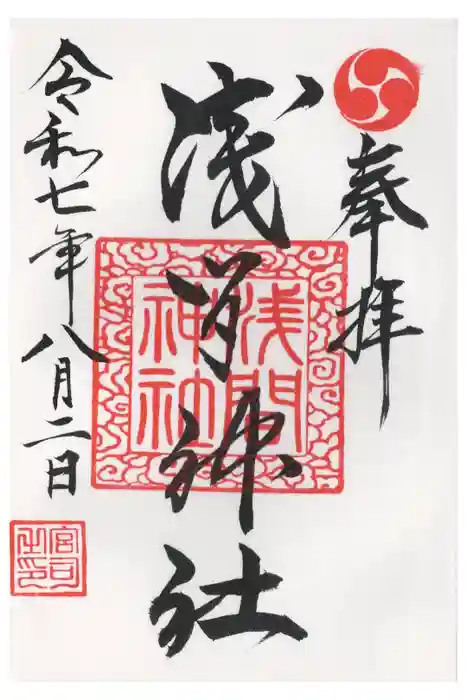 奉拝
浅間神社
浅間
神社
令和七年八月二日
宮司
之印